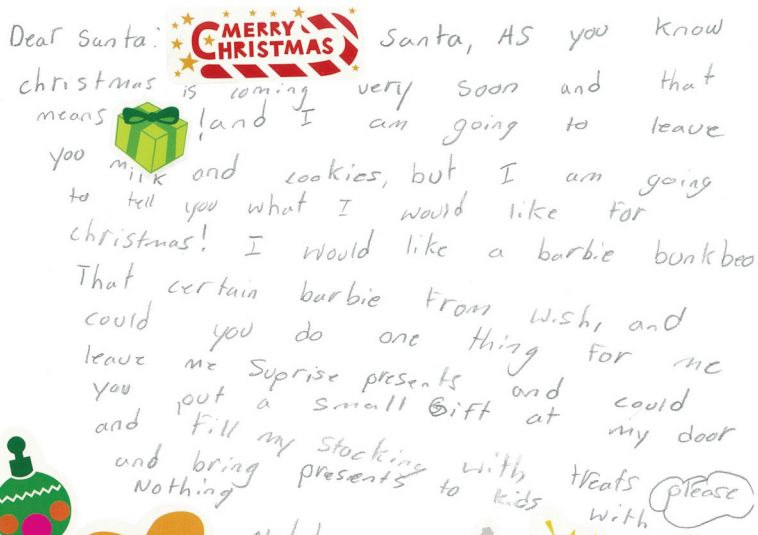 Dear Santa: MERRY CHRISTMAS Santa, As you know
christmas is coming very soon and that
means !and I am going to leave
you milk and cookies, but I am going
to tell you what I would like for
christmas! I would like a barbie bunkbed
That certain barbie from wish, and
could you do one thing for me
leave me Suprise presents and could
you put a small Gift at my door
and fill my stocking with treats please
and bring presents to kids with
Nothing